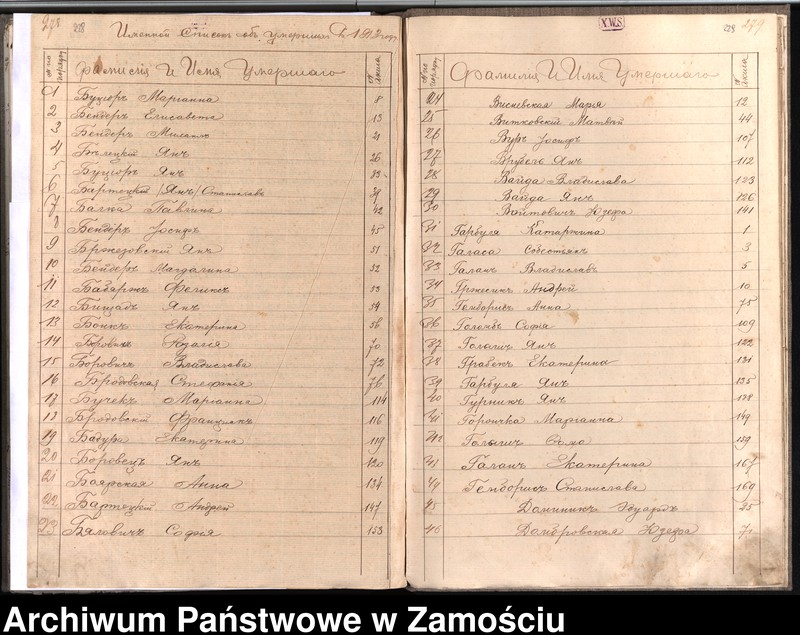 278 228
Именной Списокъ объ умершихъ за 1912 годъ
№ по порядку Фамилія И Имя Умершаго № Акта
1 Буциоръ Марианна 8
2 Бендеръ Елисавета 13
3 Бендеръ 21
4 Бѣлецкій Янъ 26
5 Буциоръ Янъ 33
6 Бартоцкій /Янъ/ Станиславъ 39
7 Павлина 42
8 Бендеръ Іосифъ 45
9 Бржезовскій Янъ 51
10 Бендеръ Магдалина 52
11 Феликсъ 53
12 Янъ 54
13 Екатерина 56
14 70
15 Боровичъ Владислава 72
16 Бродовская Стефанія 76
17 Бучекъ Марианна 114
18 Бродовскій Францишекъ 116
19 Бабура Екатерина 119
20 Боровецъ Янъ 120
21 Боярская Анна 134
22 Бартоцкій Андрей 147
23 Бяловичъ Софія 153
X.W.S.
228 279
№ по порядку Фамилія И Имя Умершаго № Акта
24 Висневская Марія 12
25 Витковскій Матвѣй 44
26 Вуръ Іосифъ 107
27 Врубель Янъ 112
28 Вайда Владислава 123
29 Вайда Янъ 126
30 Войтовичъ Юзефа 141
31 Гарбуля Катаржина 1
32 Галаса 3
33 Галанъ Владиславъ 5
34 Гржесикъ Андрей 10
35 Анна 75
36 Голомбъ Софія 109
37 Янъ 122
38 Грабекъ Екатерина 131
39 Гарбуля Янъ 135
40 Гурникъ Янъ 128
41 Горочка Марианна 149
42 159
43 Галанъ Екатерина 167
44 Станислава 169
45 Доминикъ Эдуардъ 25
46 Домбровская Юзефа 71
Archiwum Państwowe w Zamościu